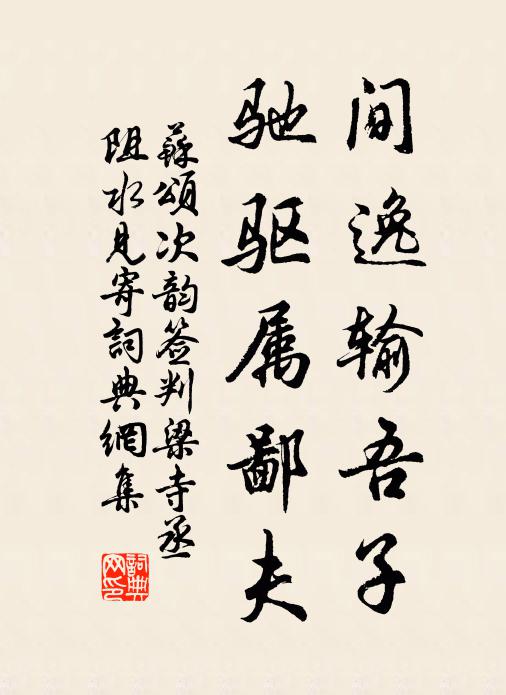 间逸输吾子
驰驱属鄙夫
蘇頌次韵签判梁寺丞
阻水见寄詞典網集
詞典
网印